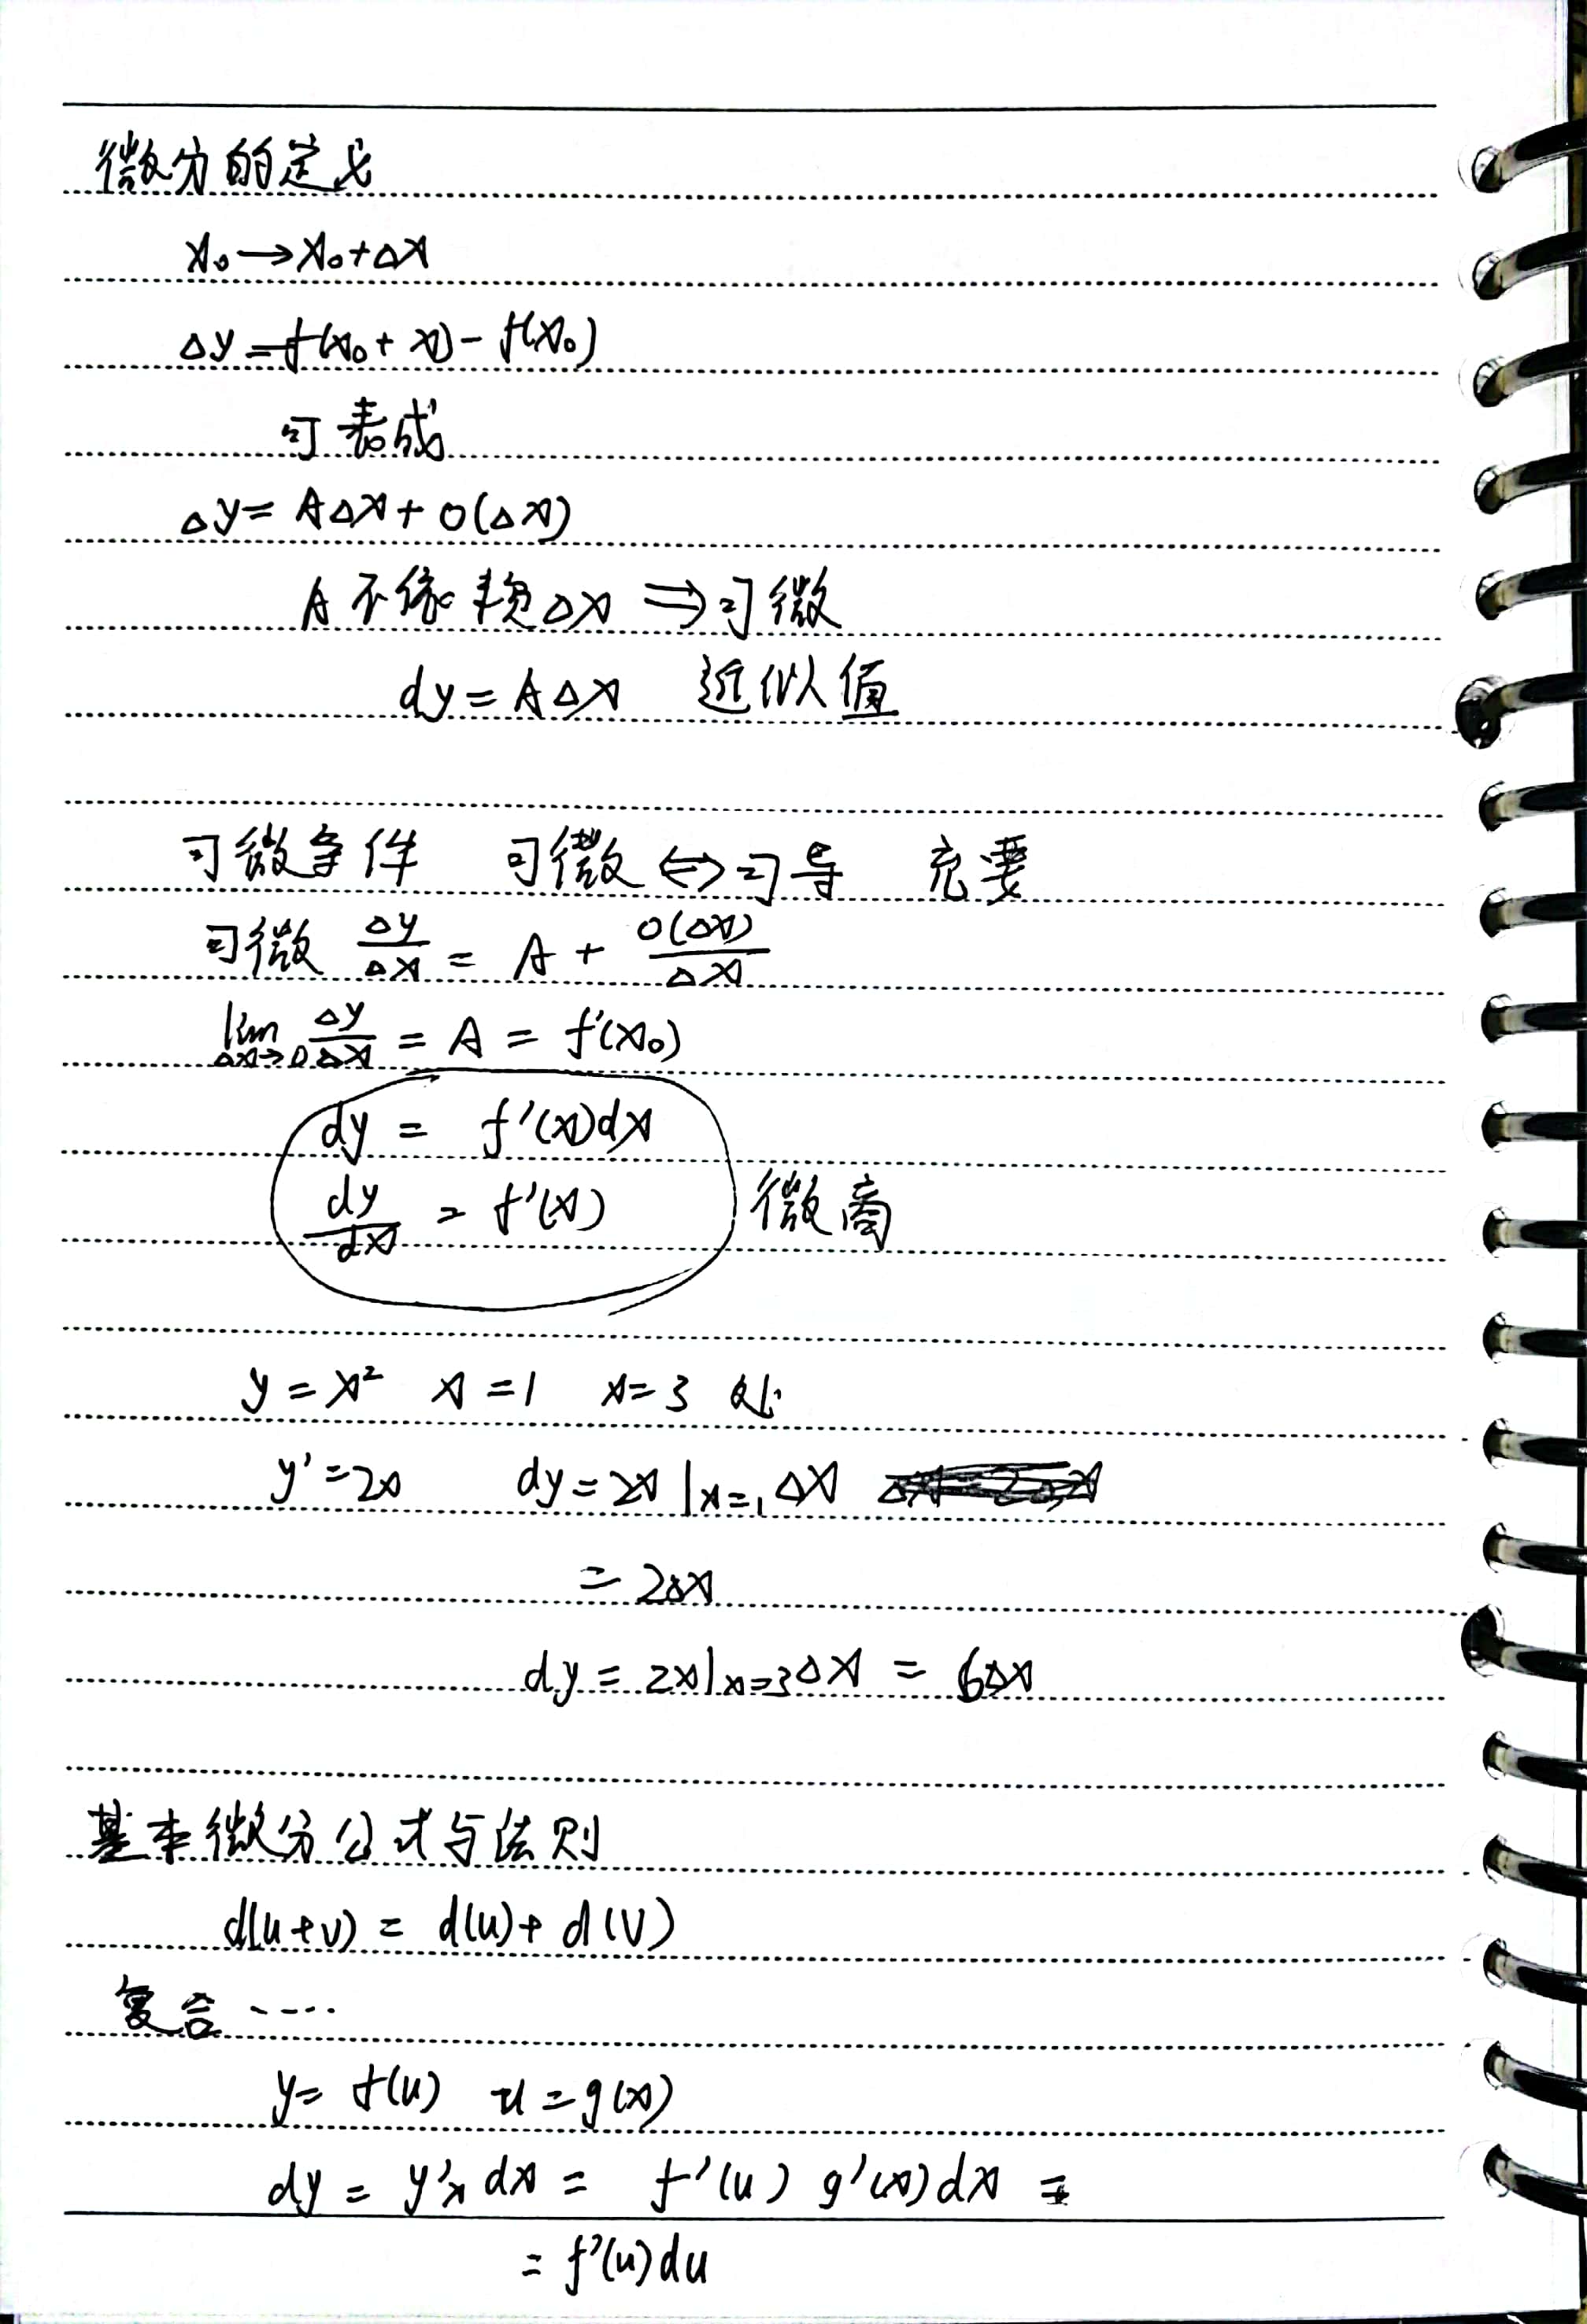 微分的定义
x₀→x₀+Δx
Δy=f(x₀+x)-f(x₀)
可表成
Δy=AΔx+o(Δx)
A不依赖Δx ⇒可微
dy=AΔx 近似值
可微条件 可微⇔可导 充要
可微 Δy/Δx = A + o(Δx)/Δx
lim Δx→0 Δy/Δx = A = f'(x₀)
dy = f'(x)dx
dy/dx = f'(x) 微商
y=x² x=1 x=3 处
y'=2x dy=2x|x=1 Δx
=2Δx
dy=2x|x=3 Δx = 6Δx
基本微分公式与法则
d(u+v) = d(u)+d(v)
复合····
y=f(u) u=g(x)
dy = y'x dx = f'(u) g'(x)dx =
= f'(u)du